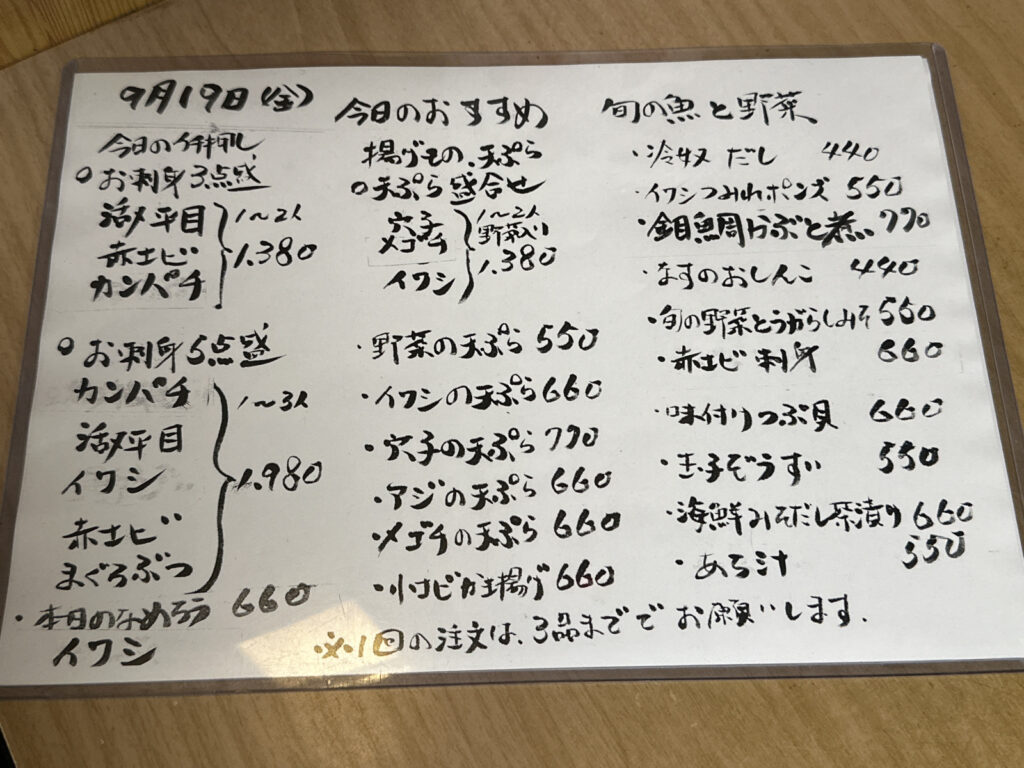 9月19日(金)
今日のイチ押し
○お刺身3点盛
活〆平目
赤エビ
カンパチ
1〜2人
1.380
○お刺身5点盛
カンパチ
活〆平目
イワシ
赤エビ
まぐろぶつ
1〜3人
1.980
・本日のなめろう 660
イワシ
今日のおすすめ
揚げもの、天ぷら
○天ぷら盛合せ
穴子
メゴチ
イワシ
1〜2人
野菜入り
1.380
・野菜の天ぷら 550
・イワシの天ぷら 660
・穴子の天ぷら 770
・アジの天ぷら 660
・メゴチの天ぷら 660
・小エビかき揚げ 660
旬の魚と野菜
・冷奴 だし 440
・イワシつみれポンズ 550
・金目鯛かぶと煮 770
・なすのおしんこ 440
・旬の野菜とうがらしみそ 550
・赤エビ刺身 660
・味付けつぶ貝 660
・玉子ぞうすい 550
・海鮮みそだし茶漬け 660
・あら汁 550
※1回の注文は、3品まででお願いします.